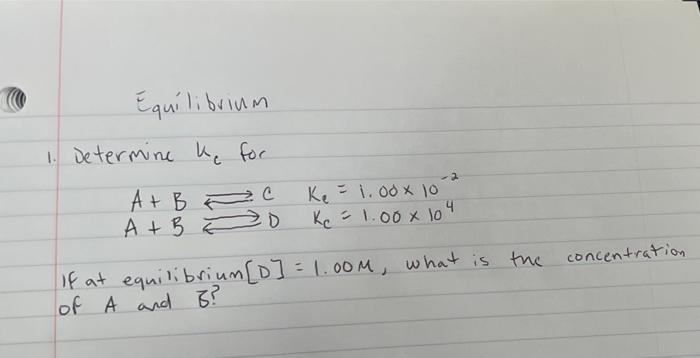 Equilibrium
1. Determine Kc for
A + B ⇌ C Kc = 1.00 x 10⁻²
A + B ⇌ D Kc = 1.00 x 10⁴
If at equilibrium [D] = 1.00M, what is the concentration
of A and B?